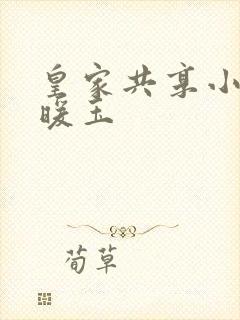 皇家共享小
暖玉
荀草